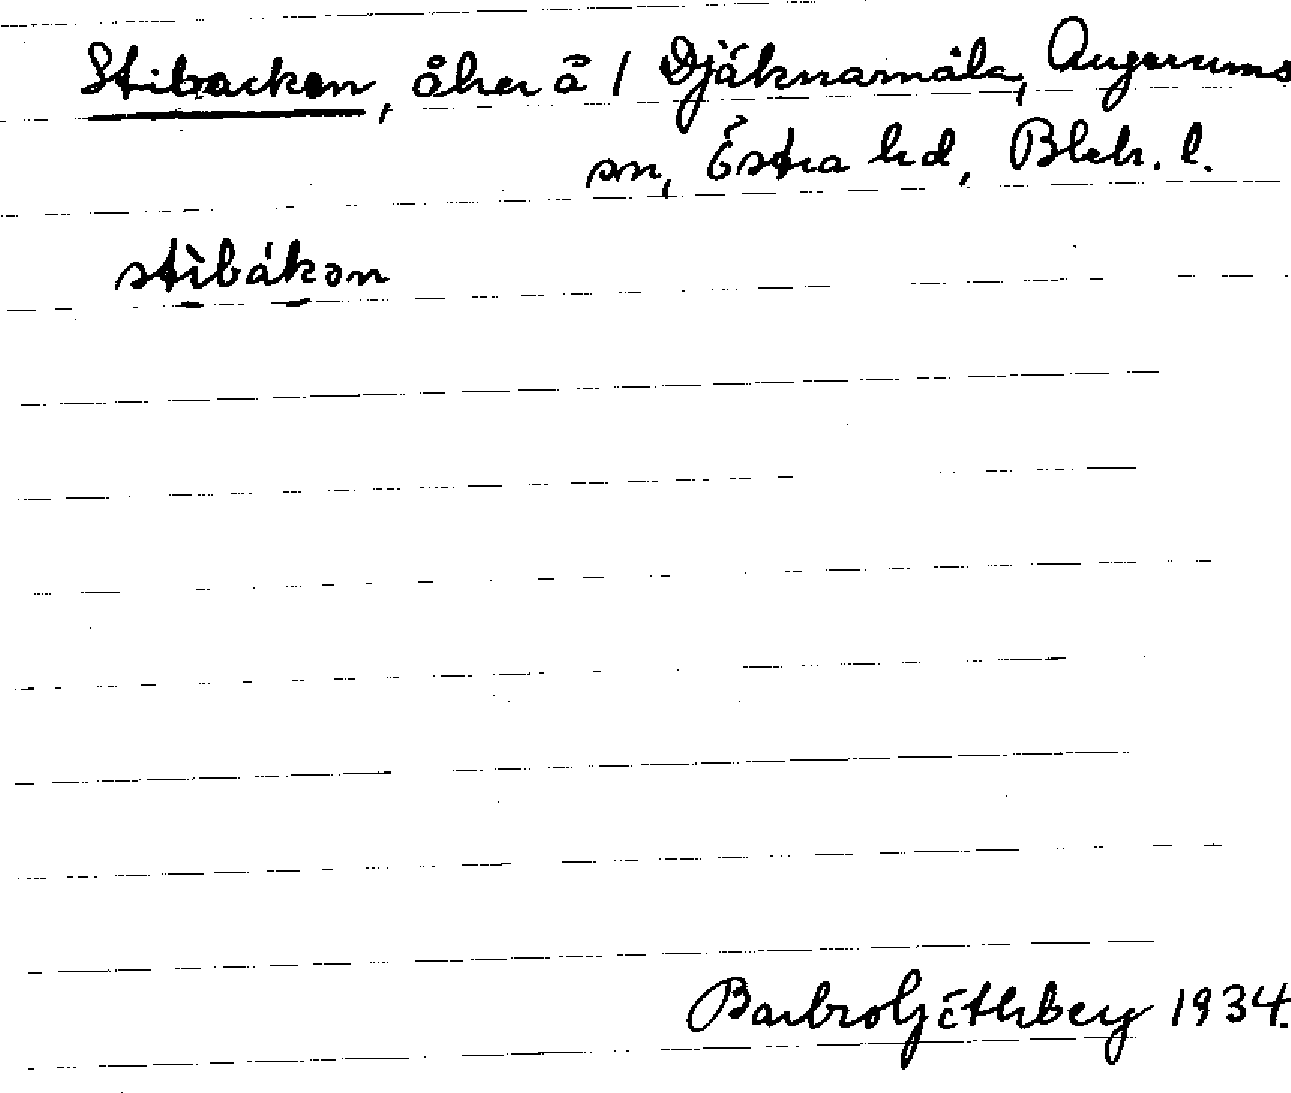 Stibacken, åker å 1 Djäknamåla, Augerums
sn, Östra hd, Blek. l.
stìbákən
Barbro Göthberg 1934.